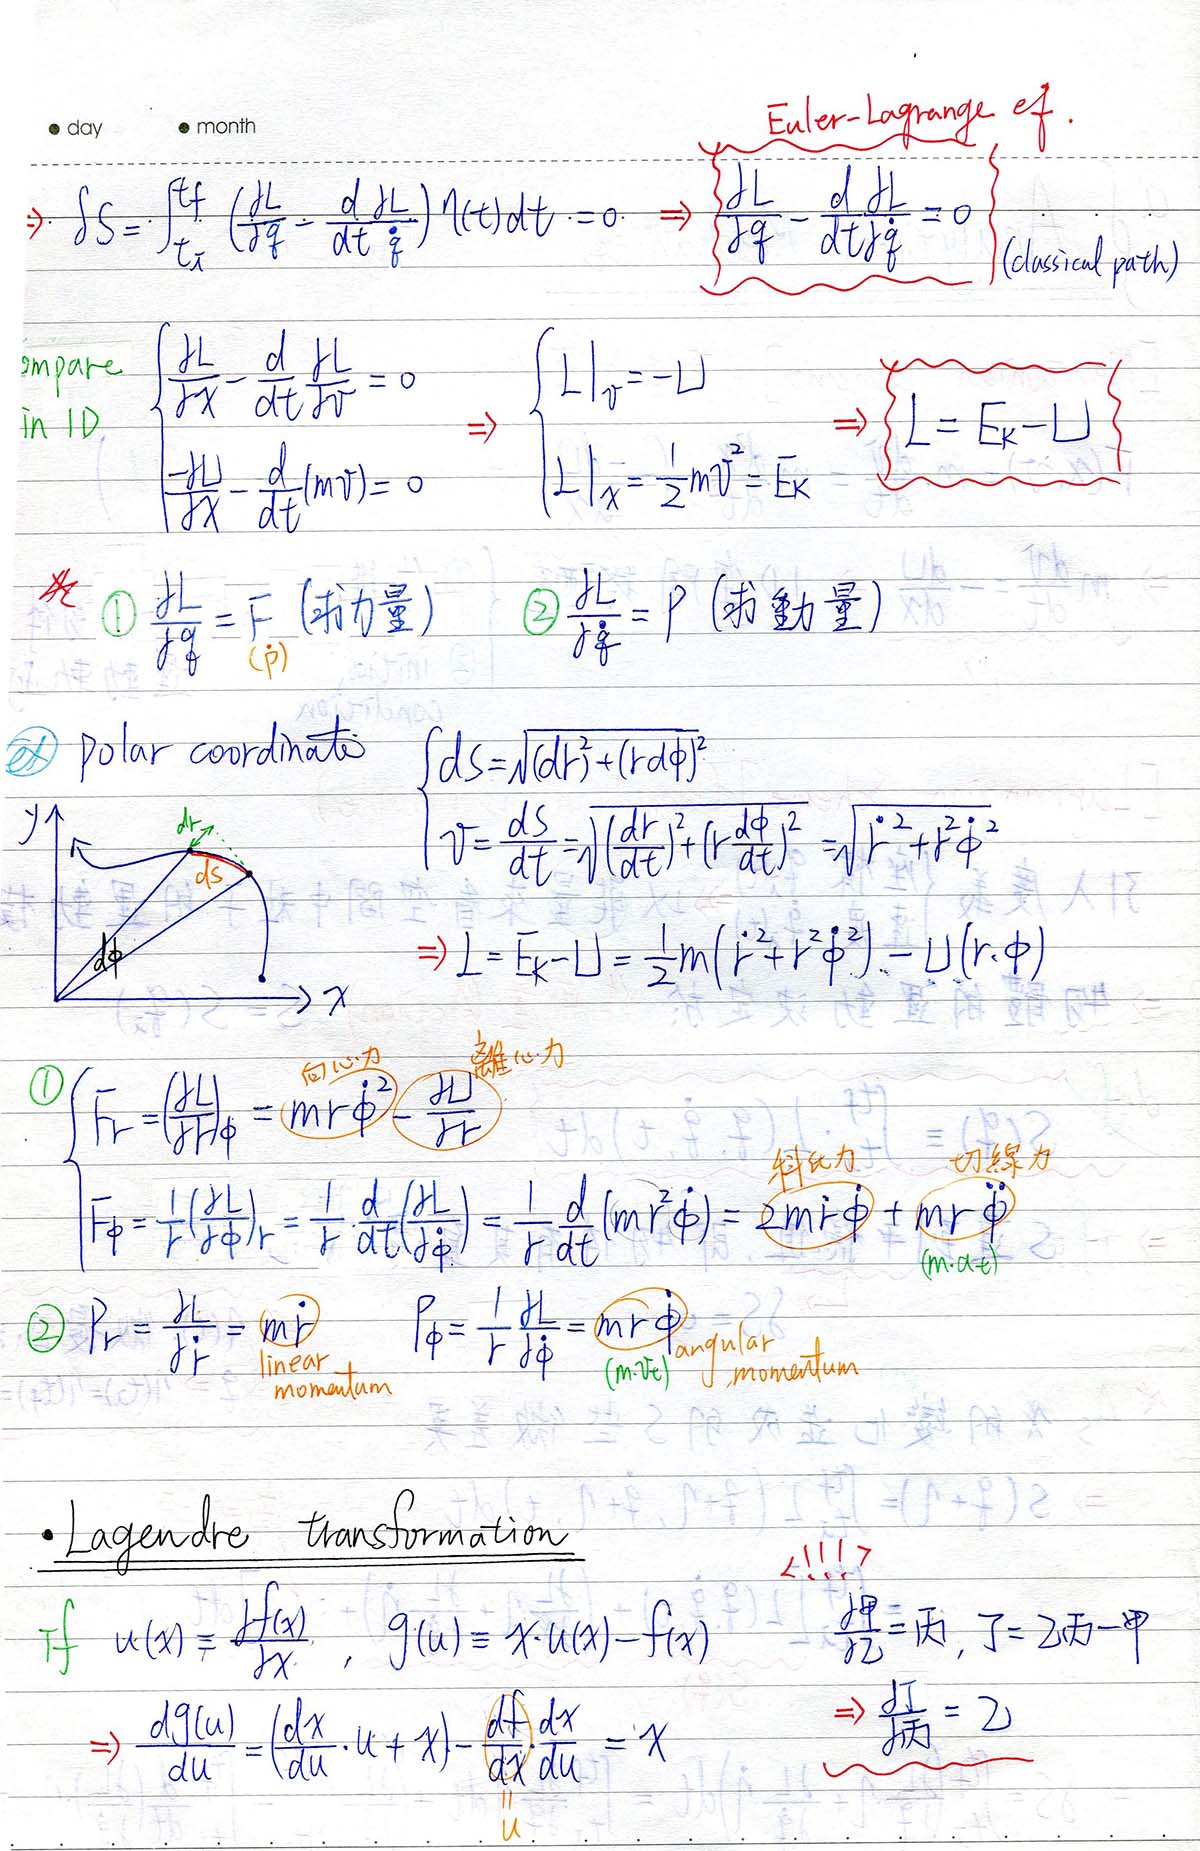 ● day ● month
Euler-Lagrange ef.
⇒ δS = ∫_{ti}^{tf} (∂L/∂q − d/dt ∂L/∂q̇) η(t) dt = 0 ⇒ ∂L/∂q − d/dt ∂L/∂q̇ = 0 (classical path)
ompare in 1D { ∂L/∂x − d/dt ∂L/∂v = 0 ⇒ { L|_v = −U ⇒ L = E_K − U
−∂U/∂x − d/dt (mv) = 0 L|_x = 1/2 mv² = E_K
① ∂L/∂q = F (求力量) ② ∂L/∂q̇ = P (求動量)
(ṗ)
ex polar coordinate { ds = √((dr)² + (rdϕ)²)
v = ds/dt = √((dr/dt)² + (r dϕ/dt)²) = √(ṙ² + r²ϕ̇²)
y dr ds dϕ x
⇒ L = E_K − U = 1/2 m(ṙ² + r²ϕ̇²) − U(r.ϕ)
向心力 離心力
① { F_r = (∂L/∂r)_ϕ = mrϕ̇² − ∂U/∂r
科氏力 切線力
F_ϕ = 1/r (∂L/∂ϕ)_r = 1/r · d/dt (∂L/∂ϕ̇) = 1/r d/dt (mr²ϕ̇) = 2mṙϕ̇ + mrϕ̈
(m·a_t)
② P_r = ∂L/∂ṙ = mṙ P_ϕ = 1/r ∂L/∂ϕ̇ = mrϕ̇
linear momentum (m·v_t) angular momentum
• Lagendre transformation
<!!!>
If u(x) ≡ ∂f(x)/∂x , g(u) ≡ x·u(x) − f(x) ∂甲/∂乙 = 丙, 丁 = 乙丙 − 甲
⇒ dg(u)/du = (dx/du · u + x) − df/dx · dx/du = x ⇒ ∂丁/∂丙 = 乙
= u